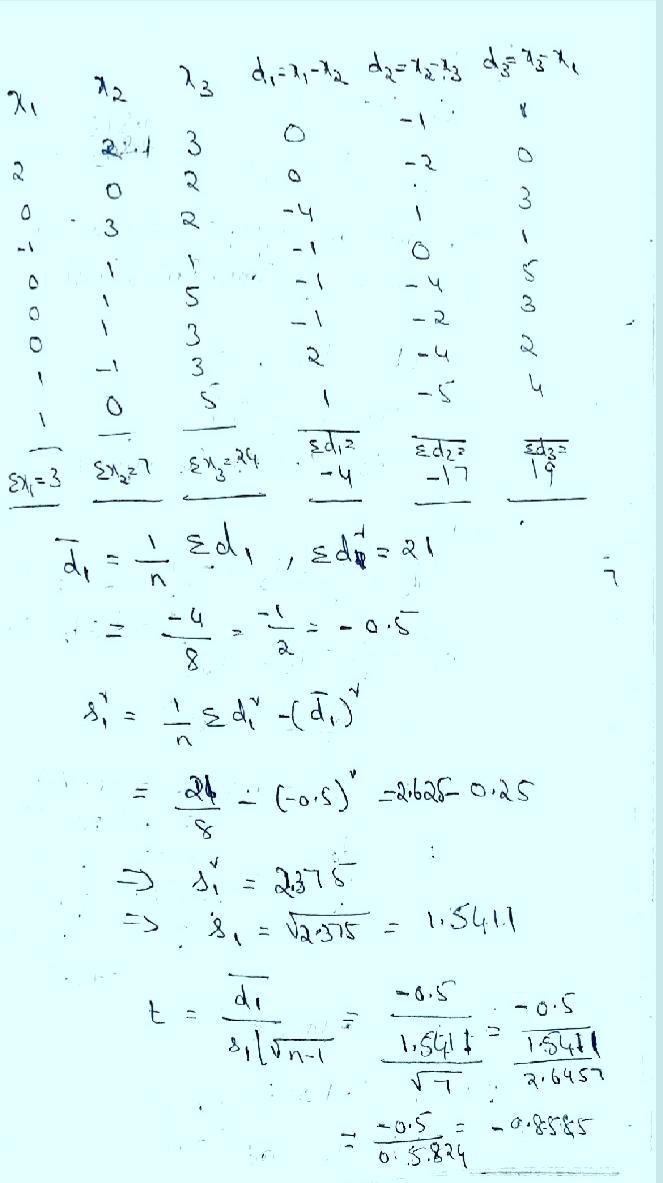 x₁ x₂ x₃ d₁=x₁-x₂ d₂=x₂-x₃ d₃=x₃-x₁
2 2 3 0 -1 1
0 0 2 0 -2 0
-1 3 2 -4 1 3
0 1 1 -1 0 1
0 1 5 -1 -4 5
0 1 3 -1 -2 3
1 -1 3 2 -4 2
1 0 5 1 -5 4
Σx₁=3 Σx₂=7 Σx₃=24 Σd₁= -4 Σd₂= -17 Σd₃= 19
d̄₁ = 1/n Σd₁ , Σd₁² = 21
= -4/8 = -1/2 = -0.5
s₁² = 1/n Σd₁² -(d̄₁)²
= 21/8 - (-0.5)² =2.625- 0.25
⇒ s₁² = 2.375
⇒ s₁ = √2.375 = 1.5411
t = d̄₁/(s₁/√n-1) = -0.5/(1.5411/√7) = -0.5/(1.5411/2.6457)
= -0.5/0.5824 = -0.8585